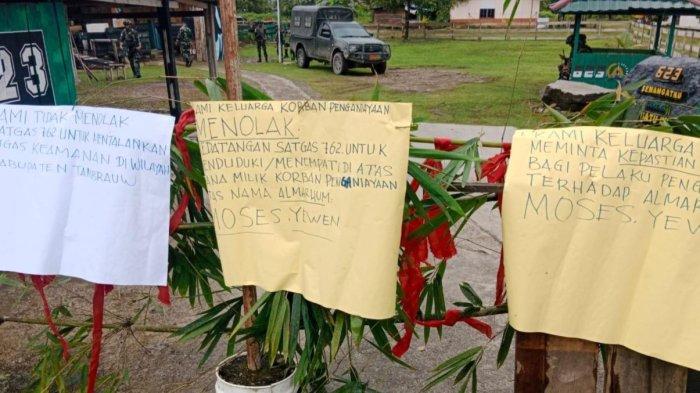 23
AMI TIDAK MENOLAK
ATGAS 762 UNTUK MENJALANKAN
GAS KEAMANAN DI WILAYAH
ABUPATEN TAMBRAUW
KAMI KELUARGA KORBAN PENGANIAYAAN
MENOLAK.
EDATANGAN SATGAS 762.UNTUK
ENDUDUKI/MENEMPATI DI ATAS
ANA MILIK KORBAN PENGANIAYAAN
TAS NAMA ALMARHUM.
MOSES.YEWEN.
KAMI KELUARGA
MEMINTA KEPASTIAN
BAGI PELAKU PEN
TERHADAP ALMAR
MOSES.YEWE
623
SEMANGATKU